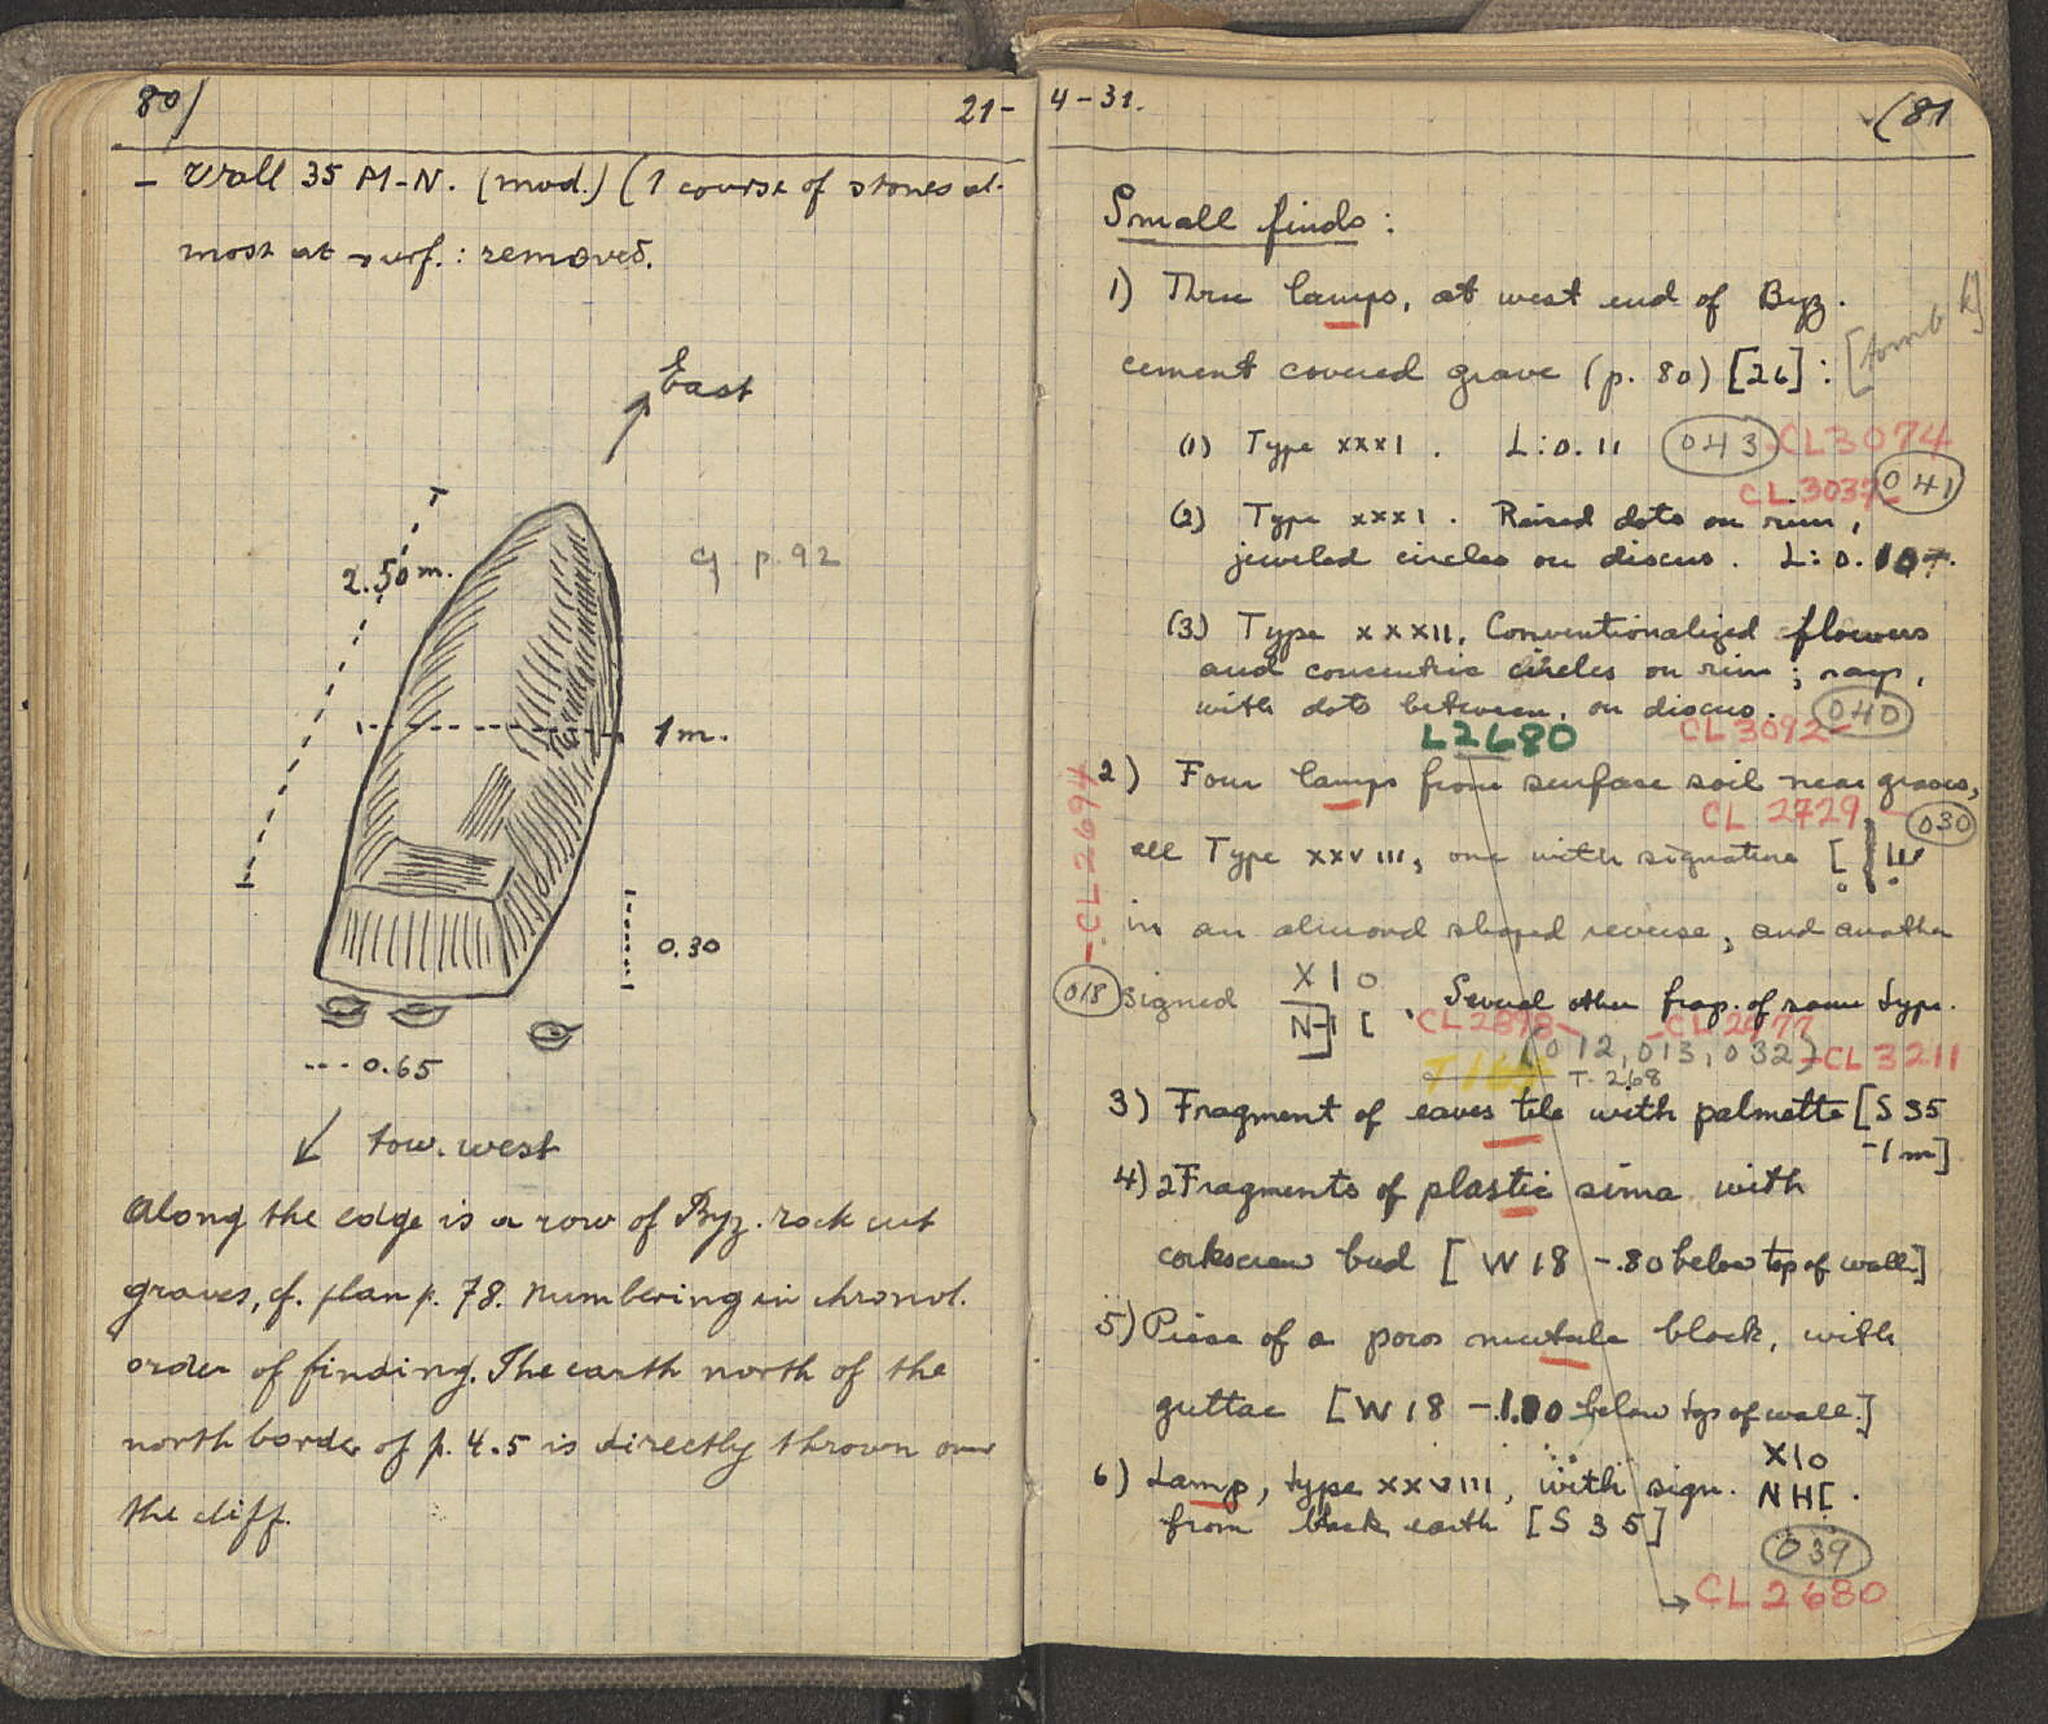 80/
21-
- Wall 35 M-N. (mod.) (1 course of stones al-
most at surf.: removed.
East
2.50 m.
cf. p. 92
1 m.
0.30
0.65
tow. west
Along the edge is a row of Byz. rock cut
graves, cf. plan p. 78. Numbering in chronol.
order of finding. The earth north of the
north border of p. 4.5 is directly thrown over
the cliff.
4-31.
(81
Small finds:
1) Three lamps, at west end of Byz.
cement covered grave (p. 80) [26]: [tomb k]
(1) Type XXXI. L: 0.11 043 -CL3074
CL 3037 041
(2) Type XXXI. Raised dots on rim,
jeweled circles on discus. L: 0.107.
(3) Type XXXII. Conventionalized flowers
and concentric circles on rim; rays,
with dots between, on discus. 040
L2680 CL 3092-
2) Four lamps from surface soil near graves,
CL 2729 030
all Type XXVIII, one with signature [
in an almond shaped reverse, and another
-CL 2694
018 signed XIO
NH[ . Several other frag. of same type.
CL 2898- -CL 2677
(012, 013, 032) -CL 3211
T 165 T. 268
3) Fragment of eaves tile with palmette [S 35
-1 m]
4) 2 Fragments of plastic sima with
corkscrew bud [W 18 -.80 below top of wall]
5) Piese of a poros mutule block, with
guttae [W 18 -1.80 below top of wall.]
6) Lamp, type XXVIII, with sign. XIO
NH[.
from black earth [S 35]
039
CL 2680